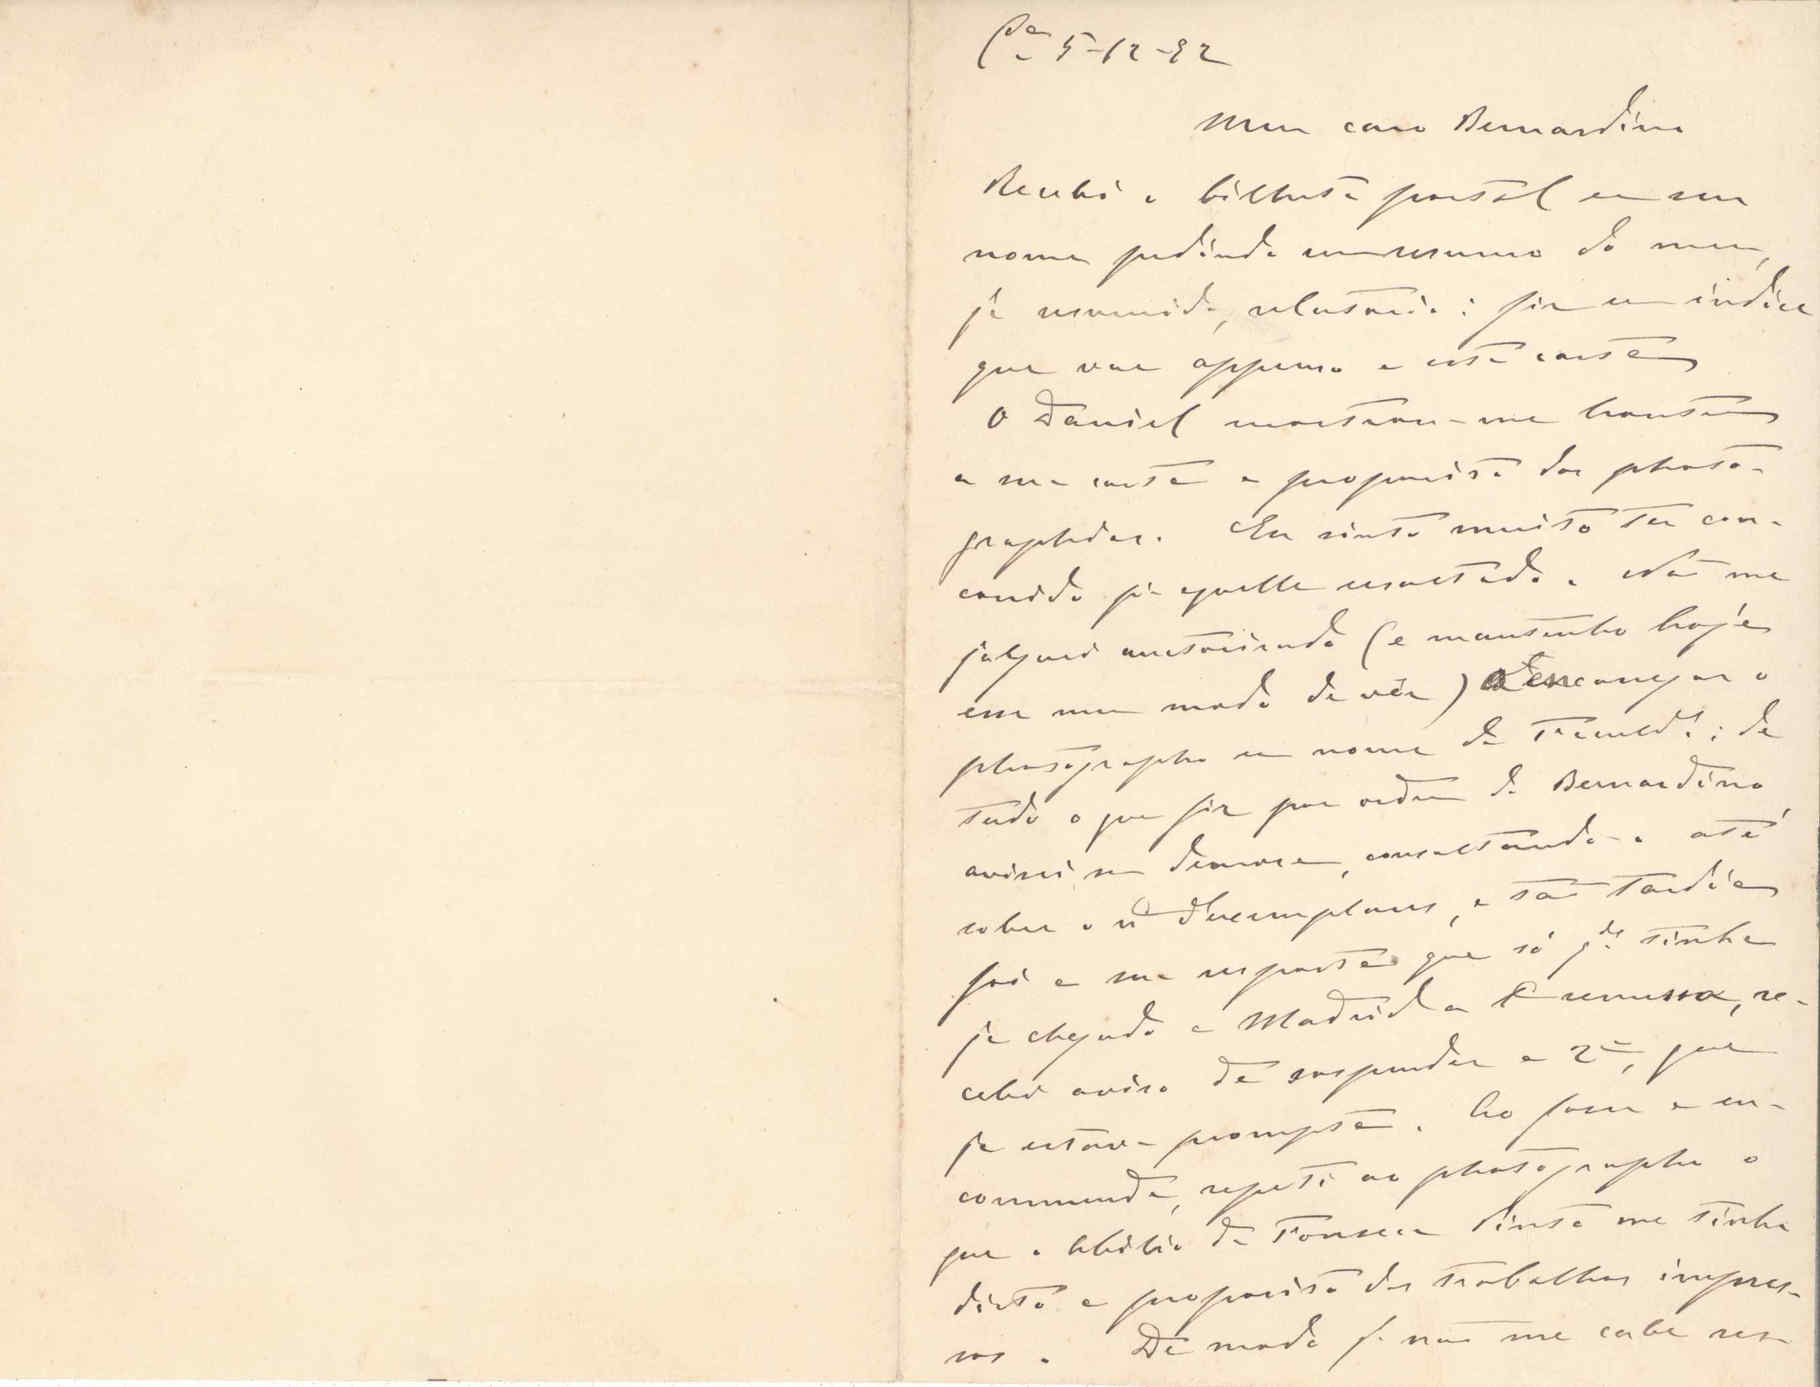 C.ª 5-12-92
Meu caro Bernardino
Recebi o bilhete postal em seu
nome pedindo um resumo do meu,
já resumido, relatorio: fiz um indice
que vae appenso a esta carta
O Daniel mostrou-me hontem
a sua carta a proposito das photo-
graphias. Eu sinto muito ter con-
corrido p.ª aquelle resultado. Não me
julguei auctorisado (e mantenho hoje
esse meu modo de vêr) a encarregar o
photographo em nome da Faculd.e; de
tudo o que fiz por ordem do Bernardino
avisei sem demora, consultando-o até
sobre o nº d'exemplares, e tão tardia
foi a sua resposta que só q.do tinha
já chegado a Madrid a 1ª remessa, re-
cebi aviso de suspender a 2ª, que
já estava prompta. Ao fazer a en-
commenda, repeti ao photographo o
que o Abilio da Fonseca Pinto me tinha
dicto a proposito dos trabalhos impres-
sos. De modo q. não me cabe res-